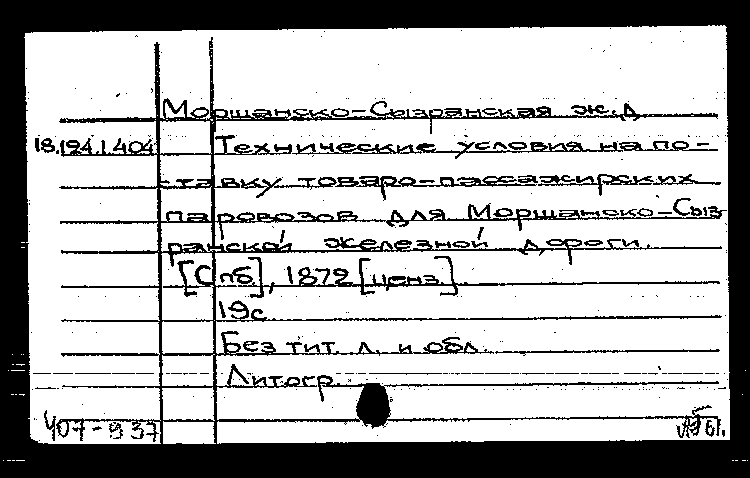 Моршанско-Сызранская ж.д
18.194.1.404 Технические условия на по-
ставку товаро-пассажирских
паровозов для Моршанско-Сыз
ранской железной дороги.
[Спб], 1872 [ценз.]
19с
Без тит. л. и обл.
Литогр.
407-937